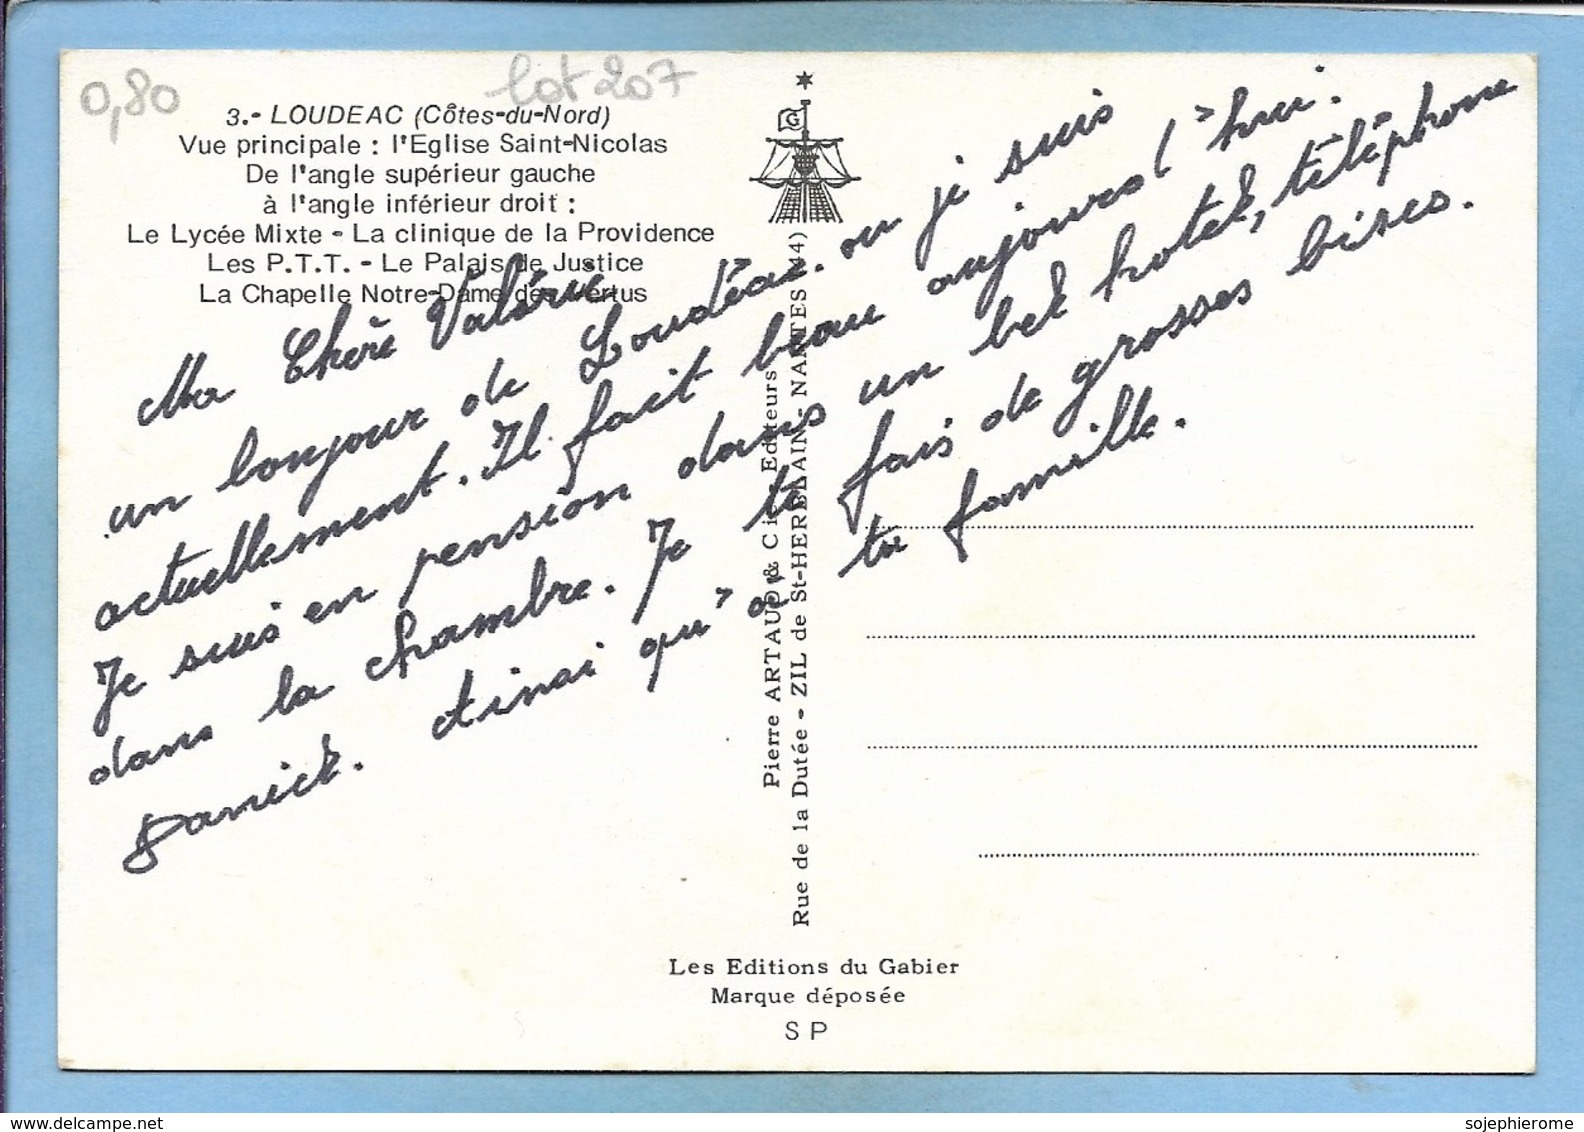 0,80
lot 207
3.- LOUDEAC (Côtes-du-Nord)
Vue principale : l'Eglise Saint-Nicolas
De l'angle supérieur gauche
à l'angle inférieur droit :
Le Lycée Mixte - La clinique de la Providence
Les P.T.T. - Le Palais de Justice
La Chapelle Notre-Dame des Vertus
Ma Chère Valérie
un bonjour de Loudéac. ou je suis
actuellement. Il fait beau aujourd'hui.
Je suis en pension dans un bel hotel, téléphone
dans la chambre. Je te fais de grosses bises.
Ainsi qu'a ta famille.
Danick.
Pierre ARTAUD & Cie Editeurs
Rue de la Dutée - ZIL de St-HERBLAIN - NANTES (44)
Les Editions du Gabier
Marque déposée
S P
sojephierome